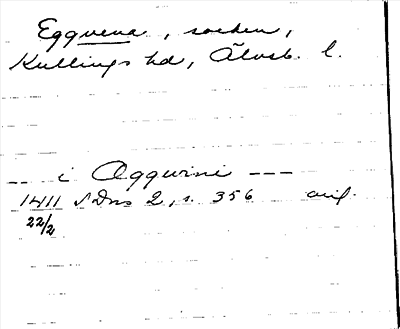 Eggvena, socken,
Kullings hd, Älvsb. l.
-- i Oggwini ---
1411 SDns 2, s. 356 avs.
22/2